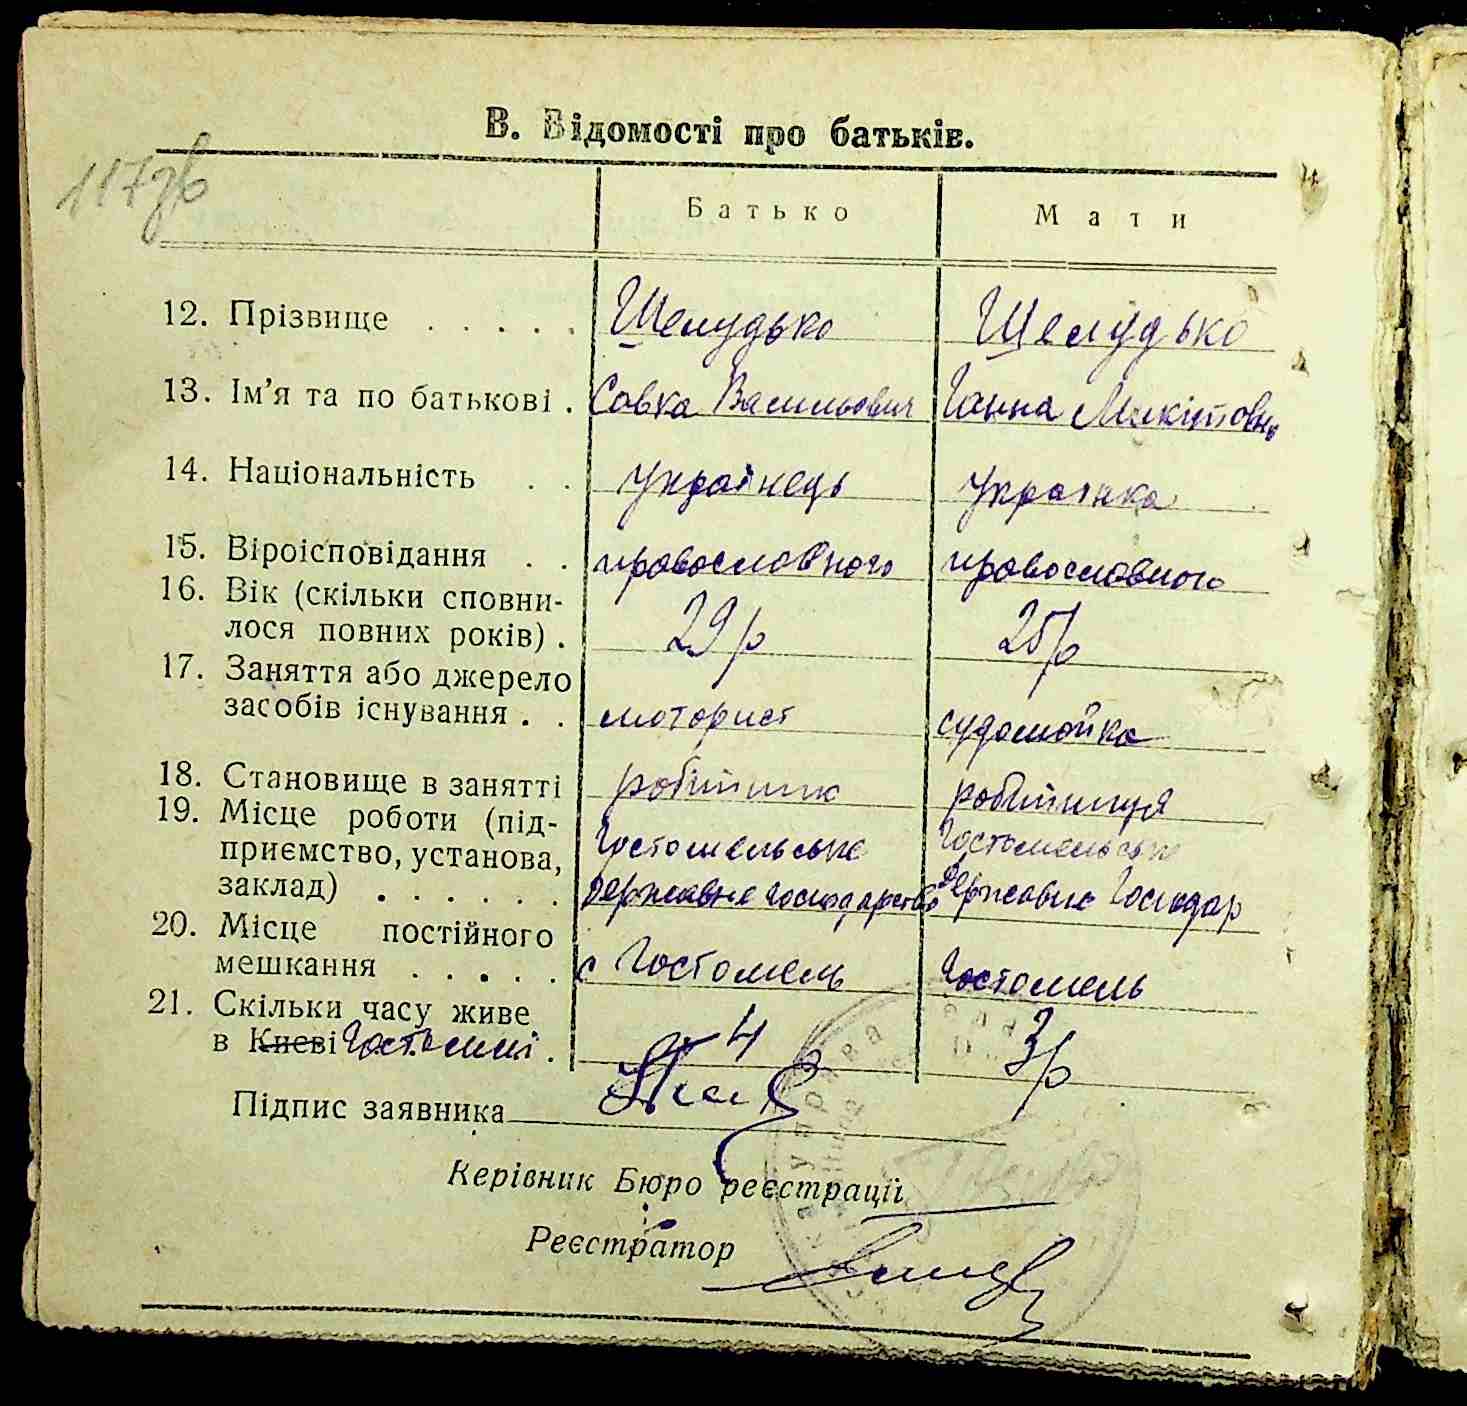 117зв
В. Відомості про батьків.
Батько Мати
12. Прізвище . . . . . Шелудько Шелудько
13. Ім'я та по батькові . Савка Васильович Ганна Микитовн
14. Національність . . Українець Українка
15. Віроісповідання . . православного православного
16. Вік (скільки сповни-
лося повних років) . 29 р 25 р
17. Заняття або джерело
засобів існування . . моторист судомойка
18. Становище в занятті робітник робітниця
19. Місце роботи (під-
приємство, установа, Гостомельське Гостомельське
заклад) . . . . . . Державне господарство Державне Господар
20. Місце постійного
мешкання . . . . . с Гостомель Гостомель
21. Скільки часу живе
в Києві Гостомлі . 4 р 3 р
Підпис заявника
Керівник Бюро реєстрації
Реєстратор